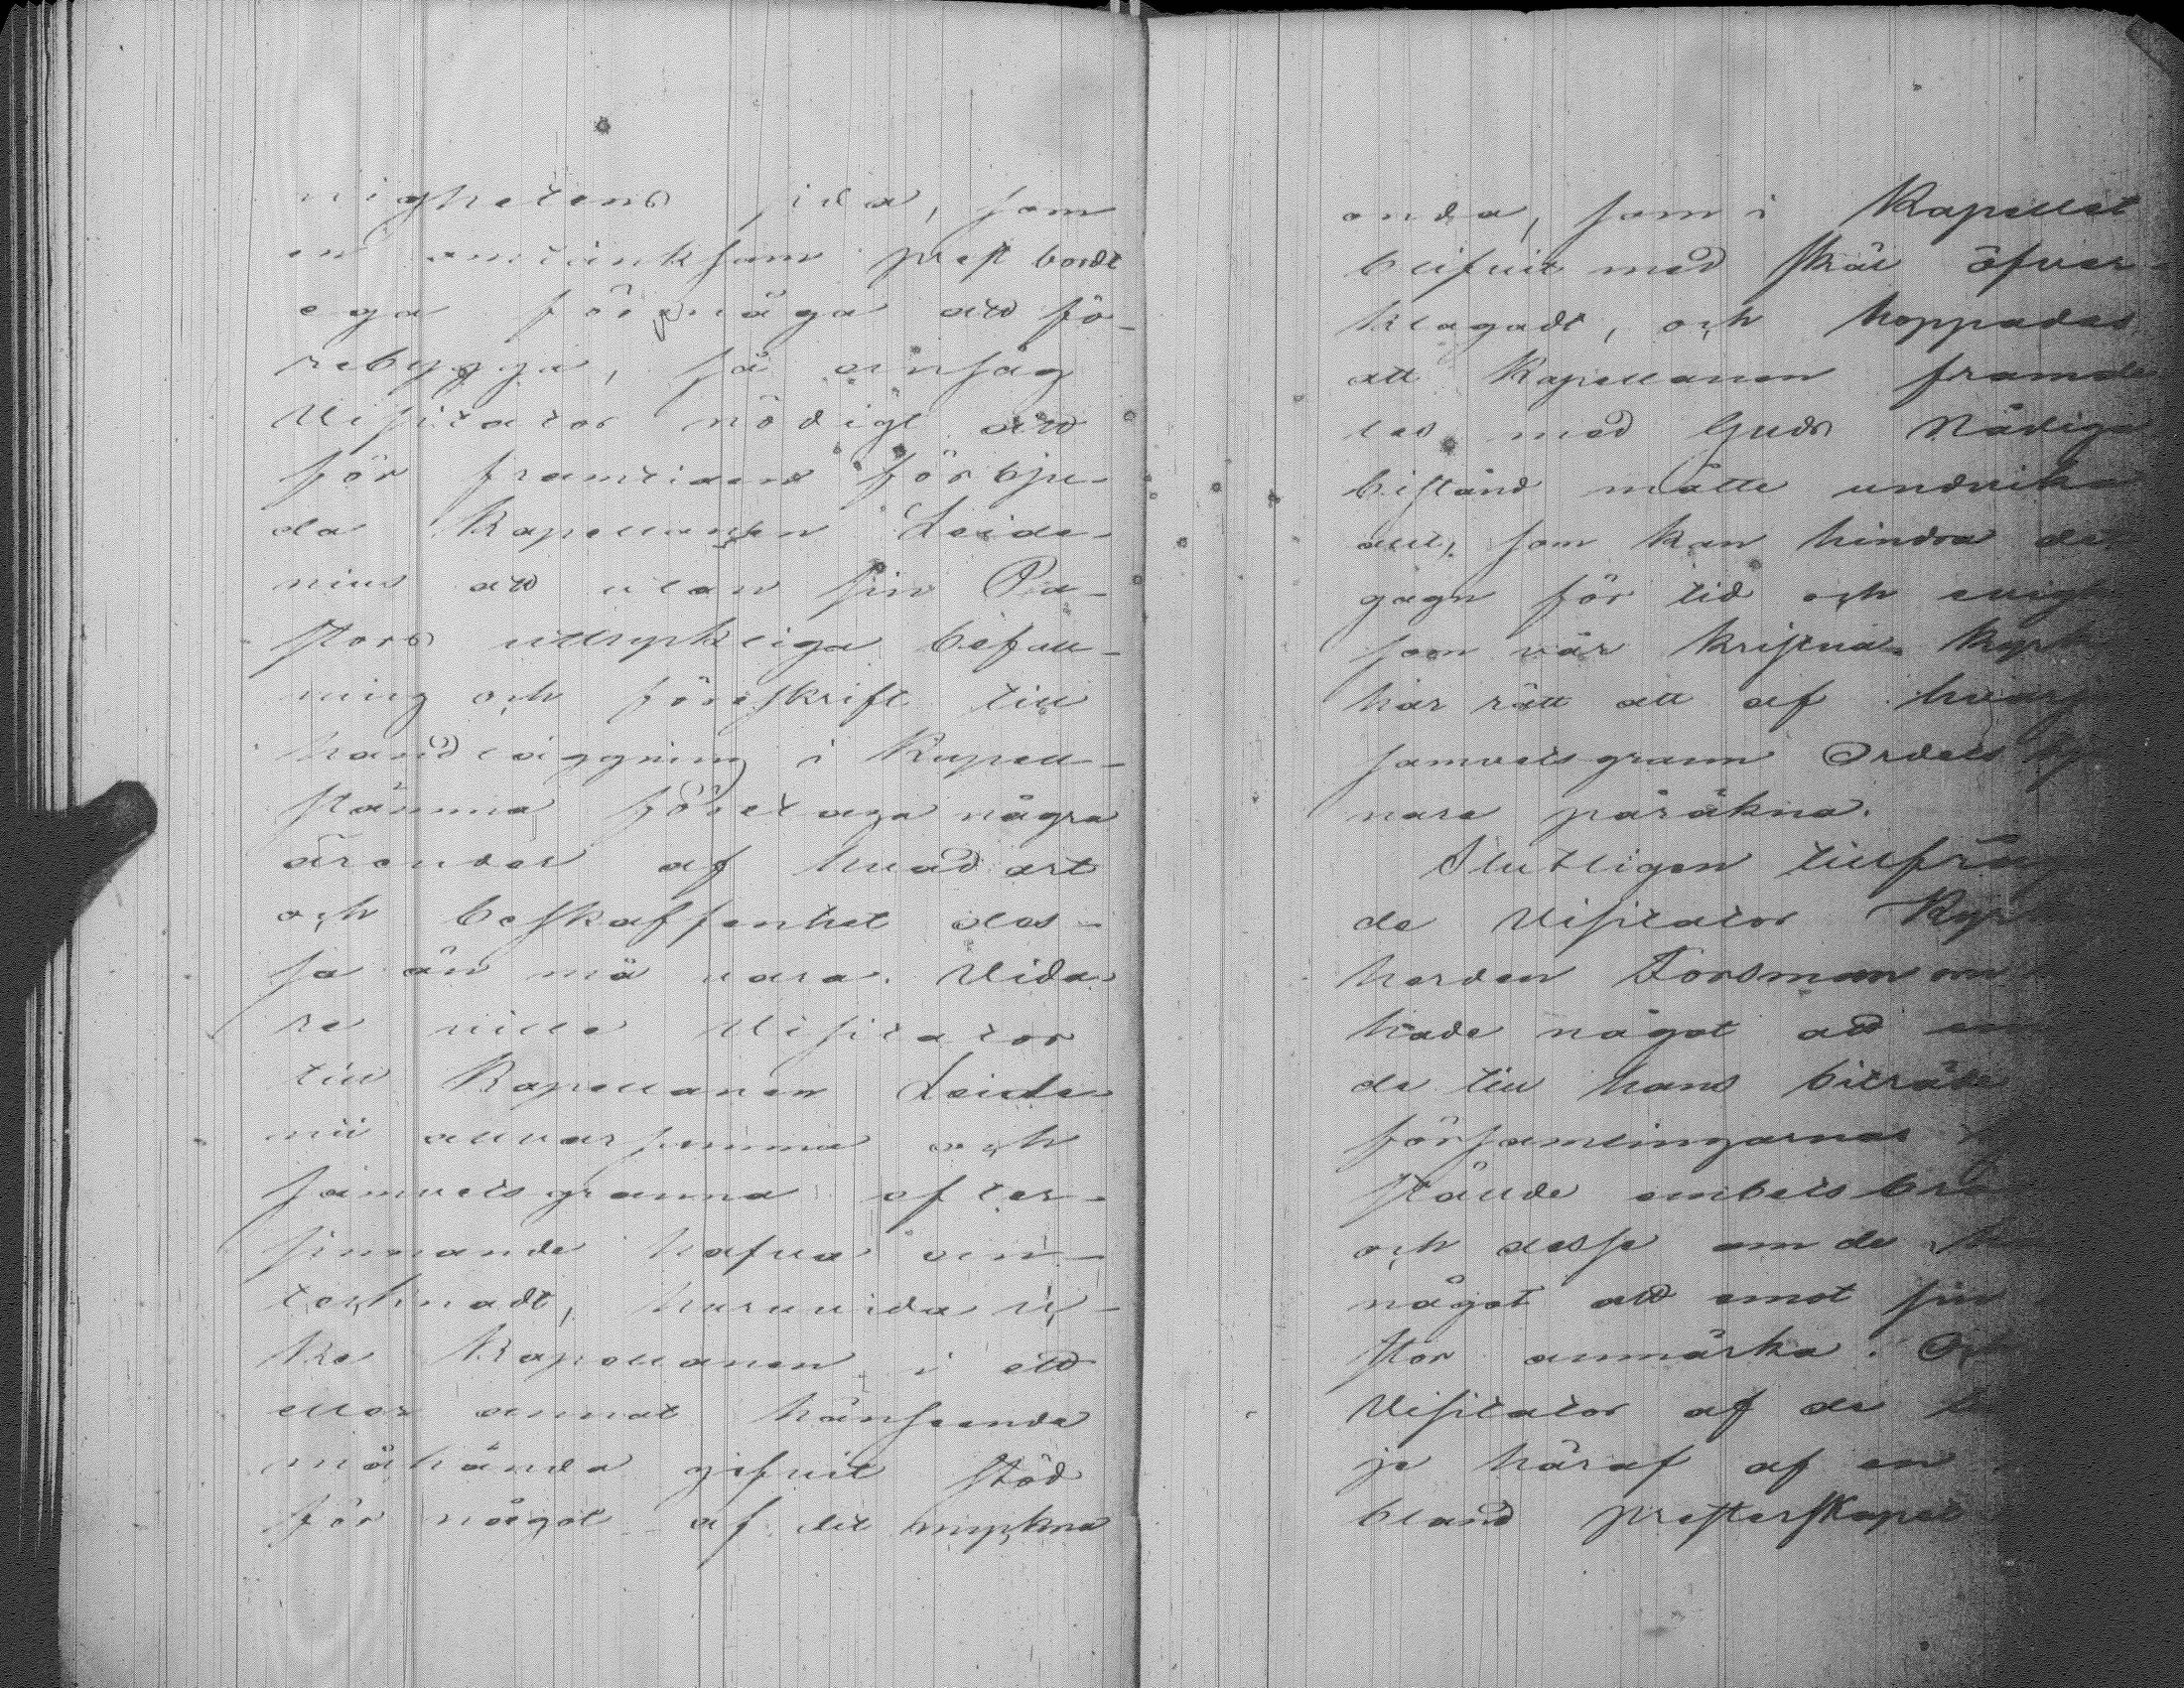 nighetens sida, som
en omtänksam prest bordt
ega förmåga att fö-
rebygga, så ansåg
Visitator nödigt att
för framtiden förbju-
da Kapellanen Leide-
nius att utan sin Pa-
stors uttryckliga befall-
ning och föreskrift till
handläggning i Kapell-
stämma företaga några
ärender af hvad art
och beskaffenhet des-
sa än må vara. Vida-
re ville Visitator
till Kapellanen Leide-
nii allvarsamma och
samvetsgranna efter-
sinnande hafva hem-
ställt, huruvida ic-
ke Kapellanen i ett
eller annat hänseende
måhända gifvit stöd
för något af det myckna
onda, som i Kapellet
blifvit med skäl öfver-
klagadt, och hoppades
att Kapellanen framde
les med Guds Nådiga
bistånd måtte undvika
allt, som kan hindra det
gagn för tid och evigh
som vår kristna Kyrk
har rätt att af hvarj
samvetsgrann Ordets tj
nare påräkna.
Slutligen tillfråg
de Visitator Kyrk
herden Forsman om
hade något att
de till hans biträde
församlingarnas
stånde embetsbrö
och dessa om de
något att emot sin
stor anmärka. Och
Visitator af de
je häraf af en
bland presterskapet